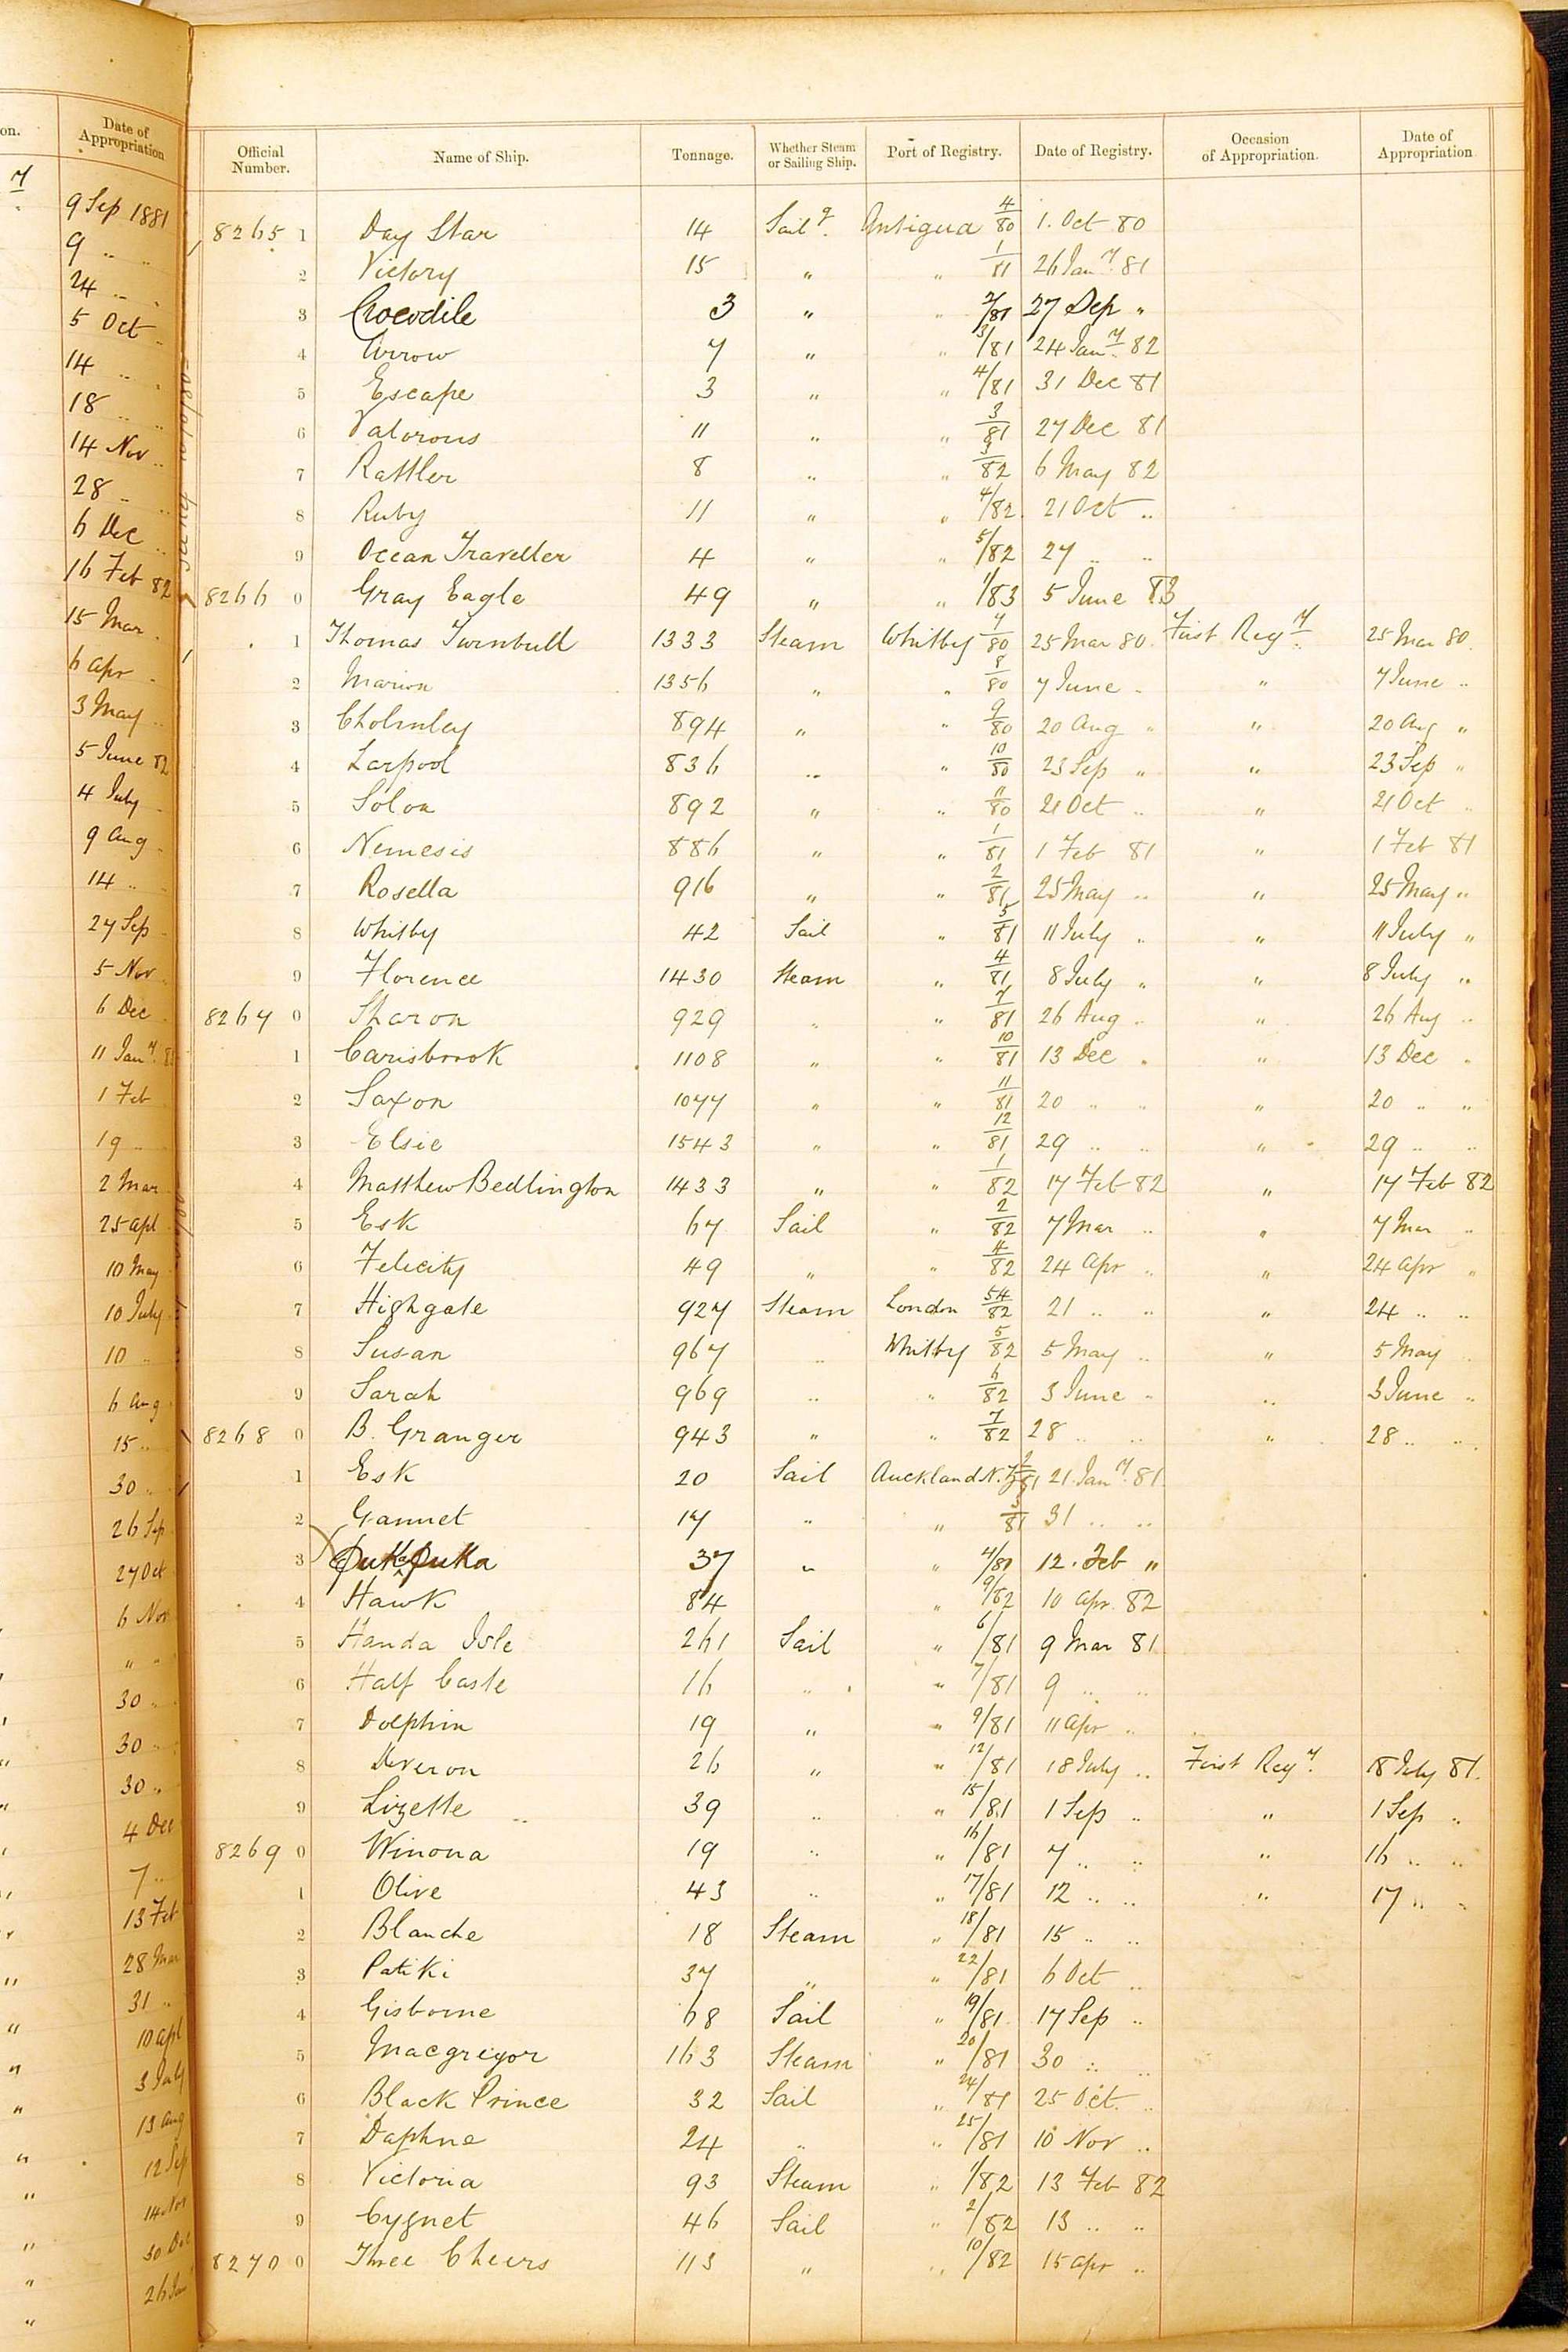 on.
Date of Appropriation
9 Sep 1881
9 " "
24 " "
5 Oct "
14 " "
18 " "
14 Nov "
28 " "
6 Dec "
16 Feb 82
15 Mar "
6 Apr "
3 May "
5 June 82
4 July "
9 Aug "
14 "
27 Sep "
5 Nov "
6 Dec
11 Jany 8
1 Feb
19 "
2 Mar
25 Apl
10 May
10 July
10 "
6 Aug
15 "
30 "
26 Sep
27 Oct
6 Nov
" "
30 "
30 "
30 "
4 Dec
7 "
13 Feb
28 Mar
31 "
10 Apl
3 July
13 Aug
12 Sep
14 Nov
30 Dec
26 Jan
Official Number. Name of Ship. Tonnage. Whether Steam or Sailing Ship. Port of Registry. Date of Registry. Occasion of Appropriation. Date of Appropriation
8265 1 Day Star 14 Sailg. Antigua 4/80 1. Oct 80
2 Victory 15 " " 1/81 26 Jany. 81
3 Crocodile 3 " " 2/81 27 Sep "
4 Arrow 7 " " 3/81 24 Jany. 82
5 Escape 3 " " 4/81 31 Dec 81
6 Valorous 11 " " 3/81 27 Dec 81
7 Rattler 8 " " 3/82 6 May 82
8 Ruby 11 " " 4/82 21 Oct "
9 Ocean Traveller 4 " " 5/82 27 " "
8266 0 Gray Eagle 49 " " 1/83 5 June 83
1 Thomas Turnbull 1333 Steam Whitby 7/80 25 Mar 80. First Regy. 25 Mar 80.
2 Marion 1356 " " 8/80 7 June " " 7 June "
3 Cholmley 894 " " 9/80 20 Aug " " 20 Aug "
4 Larpool 836 " " 10/80 23 Sep " " 23 Sep "
5 Solon 892 " " 11/80 21 Oct " " 21 Oct "
6 Nemesis 886 " " 1/81 1 Feb 81 " 1 Feb 81
7 Rosella 916 " " 2/81 25 May " " 25 May "
8 Whitby 42 Sail " 5/81 11 July " " 11 July "
9 Florence 1430 Steam " 4/81 8 July " " 8 July "
8267 0 Sharon 929 " " 7/81 26 Aug " " 26 Aug "
1 Carisbrook 1108 " " 10/81 13 Dec " " 13 Dec "
2 Saxon 1077 " " 11/81 20 " " " 20 " "
3 Elsie 1543 " " 12/81 29 " " " 29 " "
4 Matthew Bedlington 1433 " " 1/82 17 Feb 82 " 17 Feb 82
5 Esk 67 Sail " 2/82 7 Mar " " 7 Mar "
6 Felicity 49 " " 4/82 24 Apr " " 24 Apr "
7 Highgate 927 Steam London 54/82 21 " " " 24 " "
8 Susan 967 " Whitby 5/82 5 May " " 5 May "
9 Sarah 969 " " 6/82 3 June " " 3 June "
8268 0 B. Granger 943 " " 7/82 28 " " " 28 " "
1 Esk 20 Sail Auckland N.Z. 2/81 21 Jany. 81.
2 Gannet 17 " " 3/81 31 " "
3 Puka Puka 37 " " 4/81 12. Feb "
4 Hawk 84 " 9/82 10 Apr. 82
5 Handa Isle 261 Sail " 6/81 9 Mar 81
6 Half Caste 16 " " 7/81 9 " "
7 Dolphin 19 " " 9/81 11 Apr "
8 Deveron 26 " " 12/81 18 July " First Regy. 18 July 81.
9 Lizette 39 " " 15/81 1 Sep " " 1 Sep "
8269 0 Winona 19 " " 16/81 7 " " " 16 " "
1 Olive 43 " " 17/81 12 " " " 17 " "
2 Blanche 18 Steam " 18/81 15 " "
3 Patiki 37 " " 22/81 6 Oct "
4 Gisborne 68 Sail " 19/81 17 Sep "
5 Macgregor 163 Steam " 20/81 30 " "
6 Black Prince 32 Sail " 24/81 25 Oct. "
7 Daphne 24 " " 25/81 10 Nov "
8 Victoria 93 Steam " 1/82 13 Feb 82
9 Cygnet 46 Sail " 2/82 13 " "
8270 0 Three Cheers 113 " " 10/82 15 Apr "